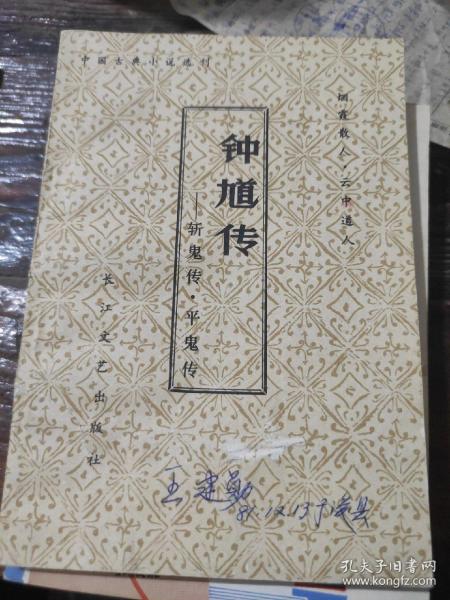 中国古典小说选刊
烟霞散人·云中道人
钟馗传
——斩鬼传·平鬼传
长江文艺出版社
王建勋
81.12.13于
孔夫子旧书网
www.kongfz.com